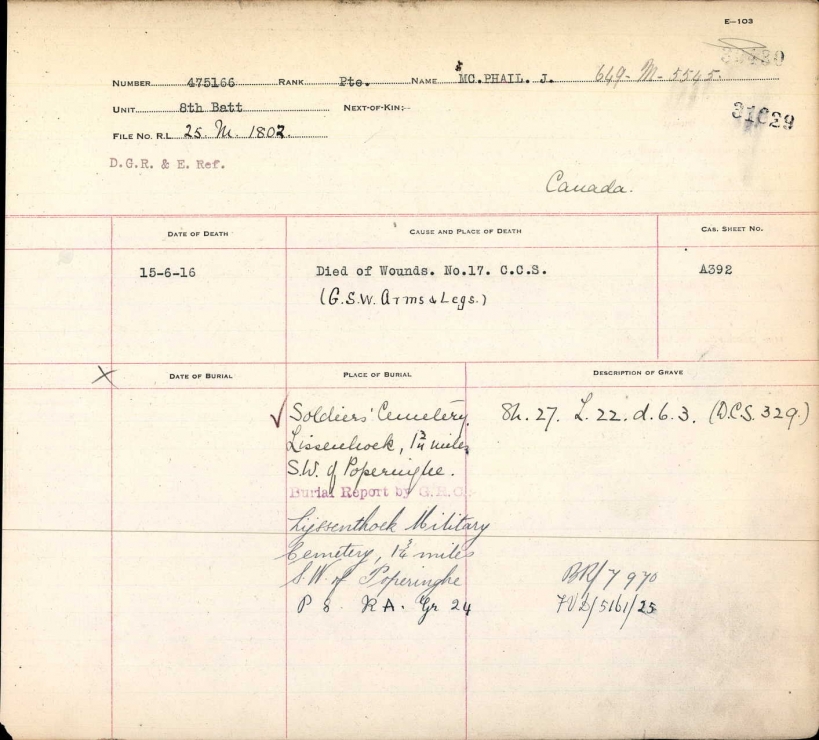 E—103
NUMBER 475166 RANK Pte. NAME MC.PHAIL. J. 649-M-5545.
UNIT 8th Batt NEXT-OF-KIN:—
31029
FILE NO. R.L. 25. M. 1802.
D.G.R. & E. Ref.
Canada.
DATE OF DEATH CAUSE AND PLACE OF DEATH CAS. SHEET NO.
15-6-16 Died of Wounds. No.17. C.C.S. A392
(G.S.W. Arms & Legs.)
X DATE OF BURIAL PLACE OF BURIAL DESCRIPTION OF GRAVE
Soldiers' Cemetery, Sh. 27. L. 22. d. 6. 3. (D.C.S. 329.)
Lissenhoek, 1¾ miles
S.W. of Poperinghe.
Burial Report by G.R.O.
Lijssenthoek Military
Cemetery, 1¾ miles
S.W. of Poperinghe BR/7970
P 8. R A. Gr 24